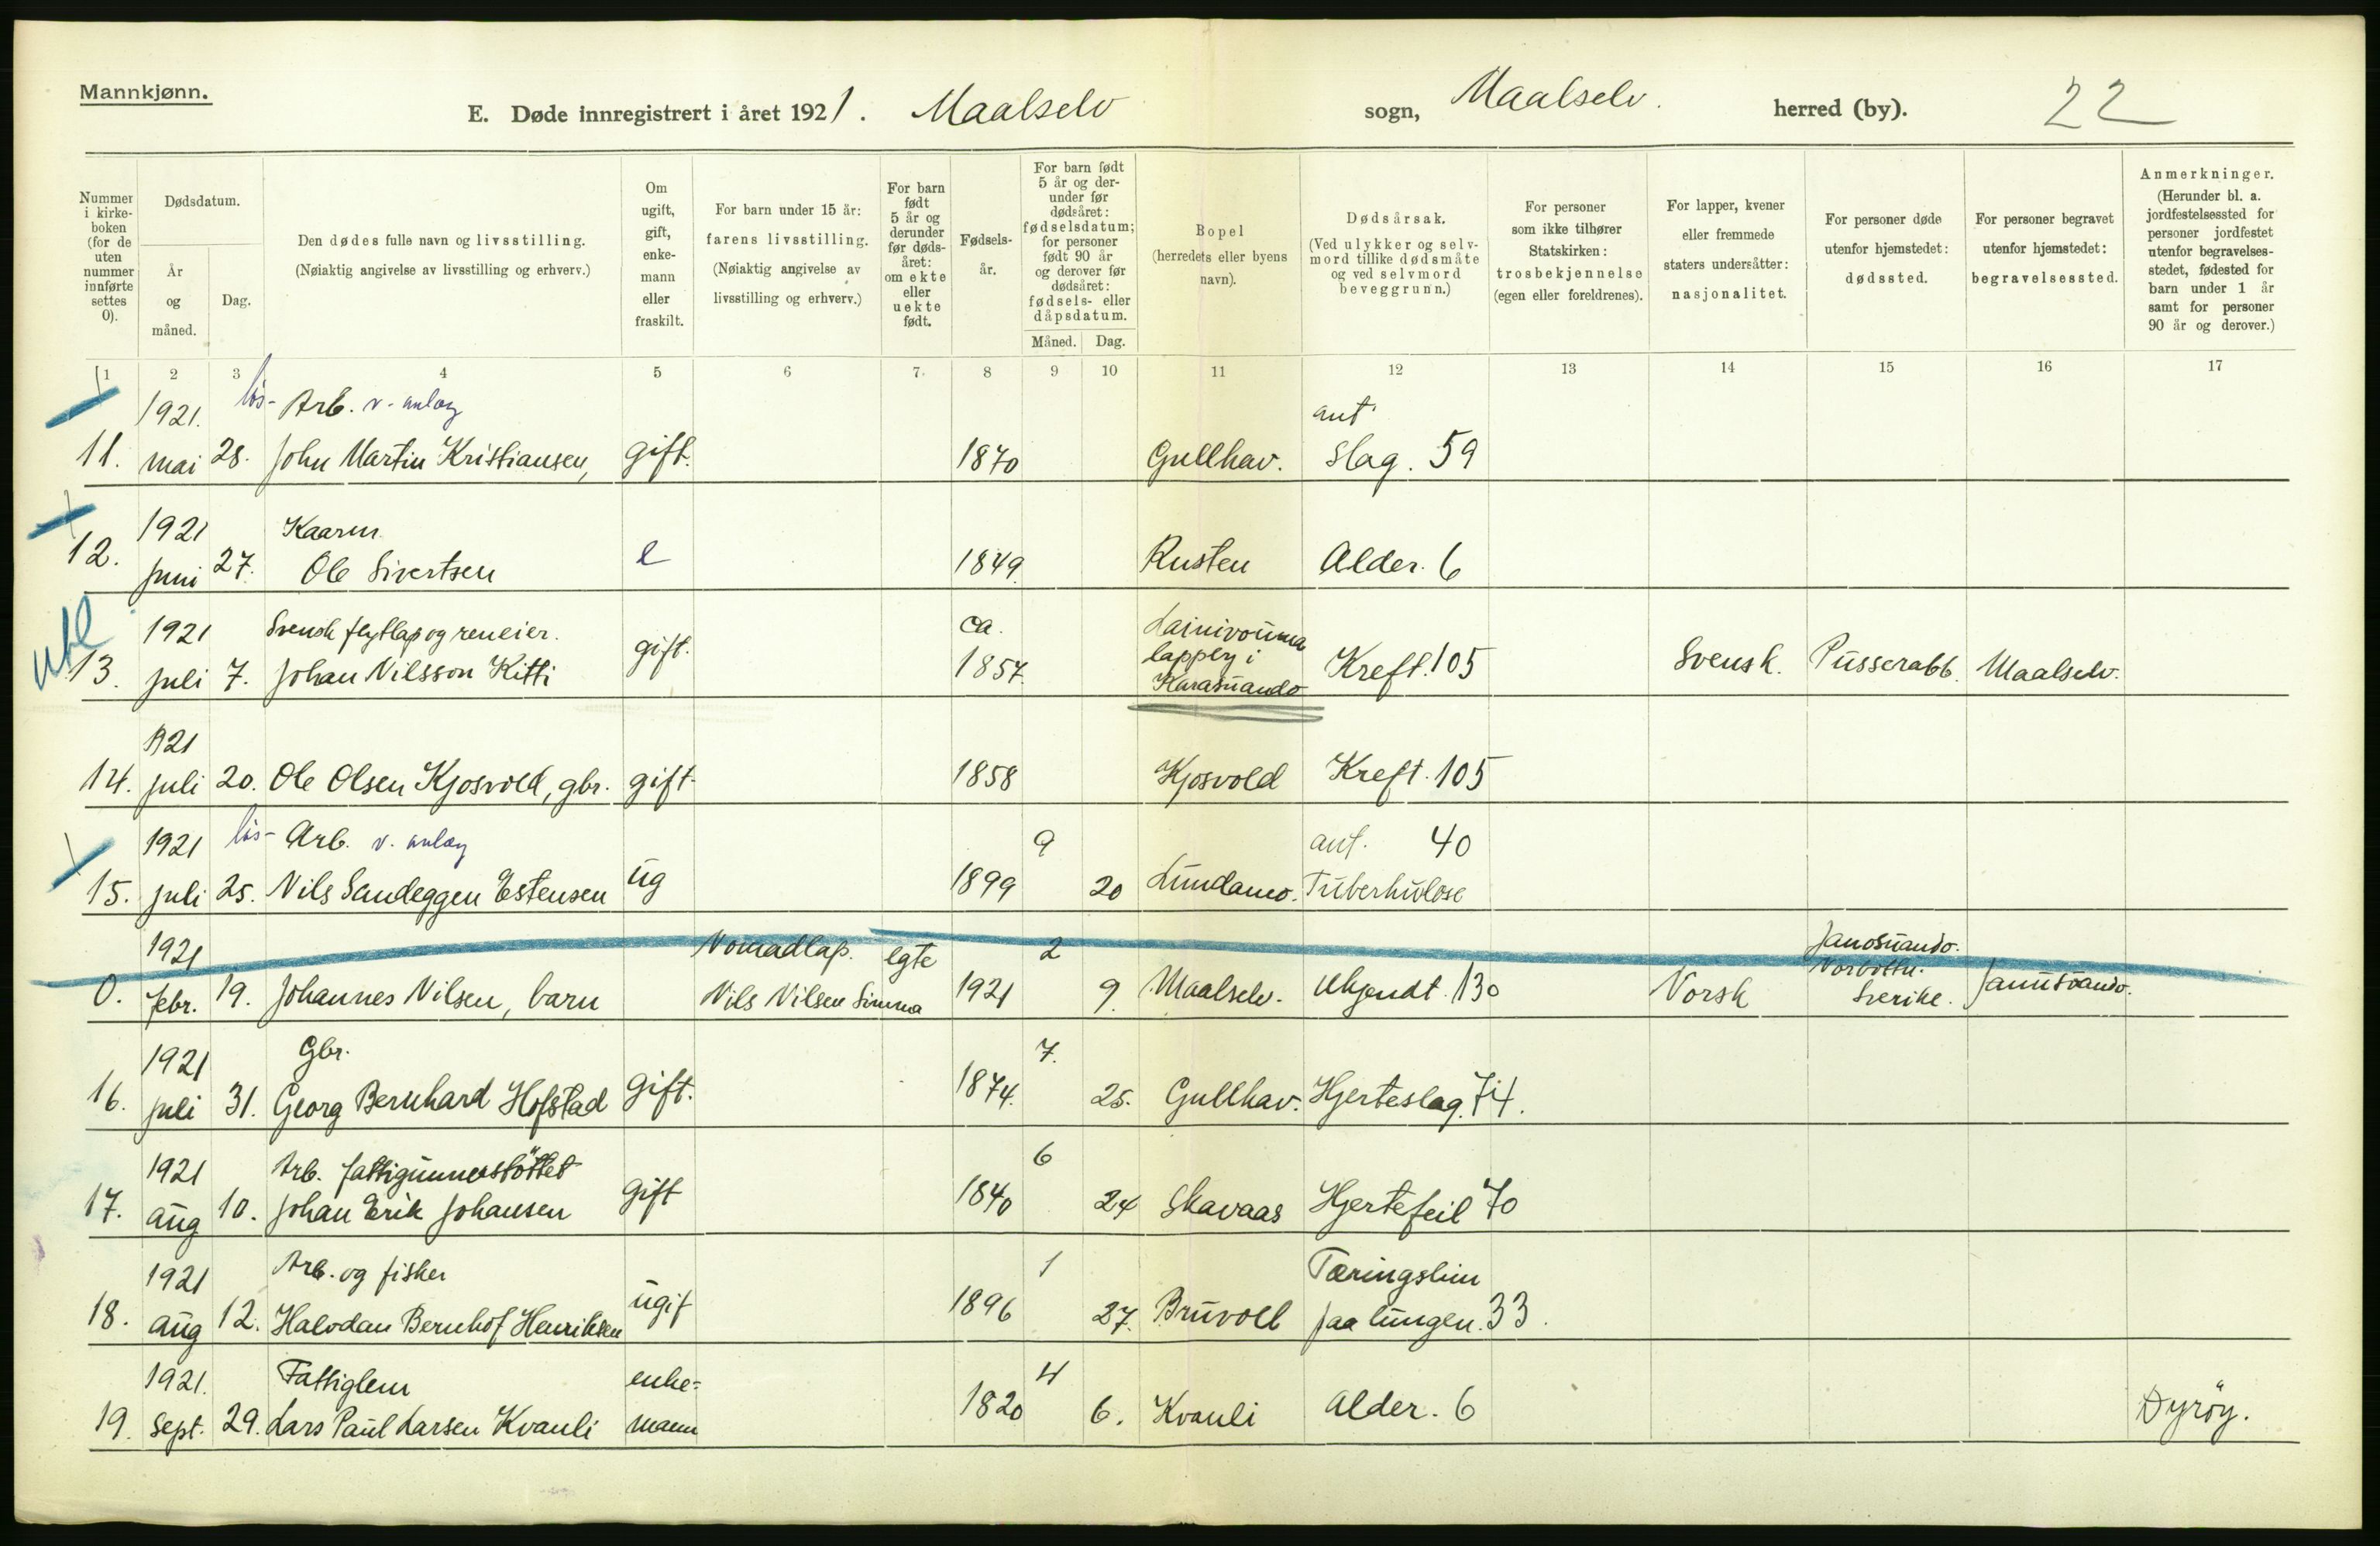 Mannkjønn.
E. Døde innregistrert i året 1921. Maalselv sogn, Maalselv. herred (by). 22
Nummer i kirke-boken (for de uten nummer innførte settes 0).
Dødsdatum.
År og måned.
Dag.
Den dødes fulle navn og livsstilling.
(Nøiaktig angivelse av livsstilling og erhverv.)
Om ugift, gift, enke-mann eller fraskilt.
For barn under 15 år: farens livsstilling.
(Nøiaktig angivelse av livsstilling og erhverv.)
For barn født 5 år og derunder før døds-året: om ekte eller uekte født.
Fødsels-år.
For barn født 5 år og der-under før dødsåret: fødselsdatum; for personer født 90 år og derover før dødsåret: fødsels- eller dåpsdatum.
Måned. Dag.
Bopel (herredets eller byens navn).
Dødsårsak.
(Ved ulykker og selv-mord tillike dødsmåte og ved selvmord beveggrunn.)
For personer som ikke tilhører Statskirken: trosbekjennelse (egen eller foreldrenes).
For lapper, kvener eller fremmede staters undersåtter: nasjonalitet.
For personer døde utenfor hjemstedet: dødssted.
For personer begravet utenfor hjemstedet: begravelsessted.
Anmerkninger.
(Herunder bl. a. jordfestelsessted for personer jordfestet utenfor begravelses-stedet, fødested for barn under 1 år samt for personer 90 år og derover.)
1 2 3 4 5 6 7 8 9 10 11 12 13 14 15 16 17
1921. løs- Arb. v. anlæg ant
11. mai 28. John Martin Kristiansen, gift. 1870 Gullhav. Slag. 59
1921 Kaarm.
12. juni 27. Ole Sivertsen e 1849. Rusten Alder. 6
utl 1921 Svensk flytlap og reneier. ca. Lainivouma
13. juli 7. Johan Nilsson Kitti gift. 1857. lappby i Karasuando Kreft. 105 Svensk. Pusserabb. Maalselv.
1921
14. juli 20. Ole Olsen Kjosvold, gbr. gift. 1858 Kjosvold Kreft. 105
1921 løs- Arb. v. anlæg 9 ant. 40
15. juli 25. Nils Sandeggen Estensen ug 1899 20 Lundamo. Tuberkulose
1921 Nomadlap. egte 2 Janosuando. Norbottn.
0. febr. 19. Johannes Nilsen, barn Nils Nilsen Simma 1921 9. Maalselv. Ukjendt. 130 Norsk Sverike. Janusuando.
1921 Gbr. 7.
16. juli 31. Georg Bernhard Hofstad gift. 1874. 25. Gullhav. Hjerteslag. 74.
1921 Arb. fattigunnerstöttet 6
17. aug 10. Johan Erik Johansen gift 1840 24 Skavaas Hjertefeil 70
1921 Arb. og fisker 1 Tæringslim
18. aug 12. Halvdan Bernhof Henriksen ugif 1896 27. Bruvoll paa lungen. 33.
1921. Fattiglem enke= 4
19. Sept. 29. Lars Paul Larsen Kvanli mann 1820 6. Kvanli Alder. 6 Dyröy.